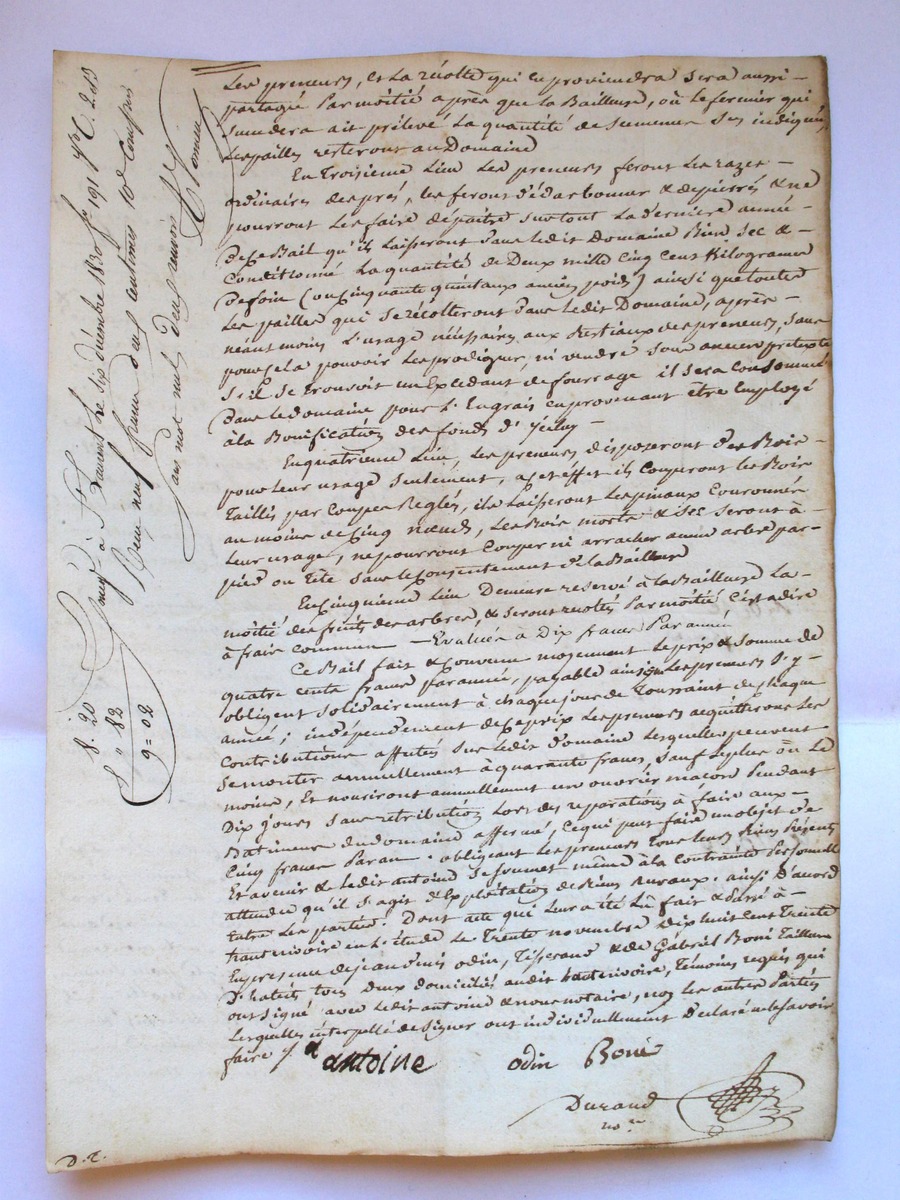 Les preneurs, et La récolte qui en proviendra sera aussi
partagée Par moitié après que la Bailleuse, où le fermier qui
succedera ait prélevé La quantité de semence ses indiquée,
Les pailles resteront au Domaine
En Troisieme Lieu Les preneurs feront Les razes
ordinaires des prés, les feront d'édarbonner & depierrés & ne
pourront Les faire dépaitre surtout La derniere année
De ce Bail qu'ils Laisseront dans Ledit Domaine Bien sec &
Conditionné La quantité de Deux mille Cinq Cent Kilograme
De foin (ou Cinquante quintaux ancien poids) ainsi que toutes
Les pailles qui se récolteront Dans Ledit Domaine, après
néantmoins L'usage nécessaire aux Bestiaux des preneurs, sans
pour cela pouvoir Les prodiguer, ni vendre sous aucun pretexte
s'il se trouvoit un Excedant de fourrage il sera Consommé
Dans le domaine pour L'Engrais en provenant être Employé
à la Bonification des fonds d'Jceluy
En quatrieme Lieu, Les preneurs disposeront des Bois
pour leur usage seulement, a cet effet ils Couperont les Bois
Taillis par Coupes Reglés, ils Laisseront Les pinaux Couronnés
au moins de Cinq nœuds, Les Bois morts & sec seront à
Leur usage, ne pourront Couper ni arracher aucun arbre par
pied ou Tête sans le Consentement de la Bailleuse
En Cinquieme Lieu Demeure reservé à la Bailleuse La
moitié des fruits des arbres, & seront récoltés Par moitié C'est adire
à frais commun — Evalués a Dix francs Par année
Ce Bail fait & Convenu moyennant Le prix & somme de
quatre cents francs par année, payable ainsi que Les preneurs s'y
obligent solidairement à chaque jour de Toussaint de chaque
année; indépendament de ce prix Les preneurs acquitteront Les
Contributions affectés sur Ledit domaine Lesquelles peuvent
se monter annuellement à quarante francs, sauf Le plus où Le
moins, Et nouriront annuellement un ouvrier maçon Pendant
Dix jours sans retribution Lors des reparations à faire aux
Batimens du domaine affermé, Ce qui peut faire un objet de
Cinq francs Par an. obligeant Les preneurs Tous leurs Biens Présents
Et avenir & Ledit antoine se soumet même à la Contrainte Personnelle
attendu qu'il s'agit d'Exploitation de Biens Ruraux. ainsi D'acord
Entre Les parties. Dont acte qui Leur a été Lû fait & Passé à
hauterivoire en L'étude Le Trente novembre dix huit cent Trente
En presence de jean denis odin, Tisserand & de Gabriel Boni Tailleur
D'habits tous deux domiciliés audit hauterivoire, Témoins requis qui
ont signé avec Ledit antoine & nous notaire, non les autres Parties
Lesquelles interpellé de signer ont individuellement Déclaré ne le savoir
faire
antoine
odin Boni
Durand
nore
D. E.
Enregé à St Laurent le six décembre 1830 fo 191 Vo C. 2 et 3
Reçu neuf francs deux centimes 10e Compris
sans mot nul deux renvois
8. 20
" 82
9=02